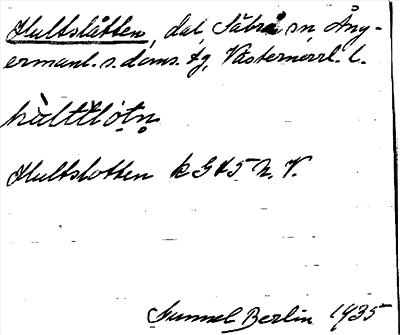 Hultslåtten, dal, Säbrå sn, Ång-
ermanl. s. doms. tg, Västernorrl. l.
Hultslotten k G45 N.V.
Gunnel Berlin 1935